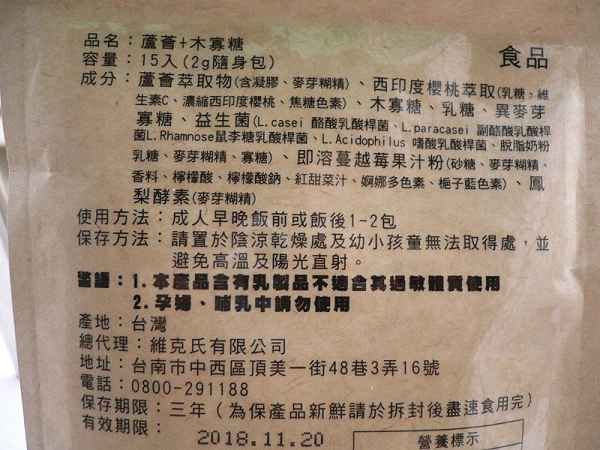 品名：蘆薈+木寡糖
食品
容量：15入(2g隨身包)
成分：蘆薈萃取物(含凝膠、麥芽糊精)、西印度櫻桃萃取(乳糖,維
生素C、濃縮西印度櫻桃、焦糖色素)、木寡糖、乳糖、異麥芽
寡糖、益生菌(L.casei 酪酸乳酸桿菌、L.paracasei 副酪酸乳酸桿
菌L.Rhamnose鼠李糖乳酸桿菌、L.Acidophilus 嗜酸乳酸桿菌、脫脂奶粉
乳糖、麥芽糊精、寡糖)、即溶蔓越莓果汁粉(砂糖、麥芽糊精、
香料、檸檬酸、檸檬酸鈉、紅甜菜汁、婀娜多色素、梔子藍色素)、鳳
梨酵素(麥芽糊精)
使用方法：成人早晚飯前或飯後1-2包
保存方法：請置於陰涼乾燥處及幼小孩童無法取得處，並
避免高溫及陽光直射。
警語：1.本產品含有乳製品不適合其過敏體質使用
2.孕婦、哺乳中請勿使用
產地：台灣
總代理：維克氏有限公司
地址：台南市中西區頂美一街48巷3弄16號
電話：0800-291188
保存期限：三年（為保產品新鮮請於拆封後盡速食用完）
有效期限：
2018.11.20
營養標示